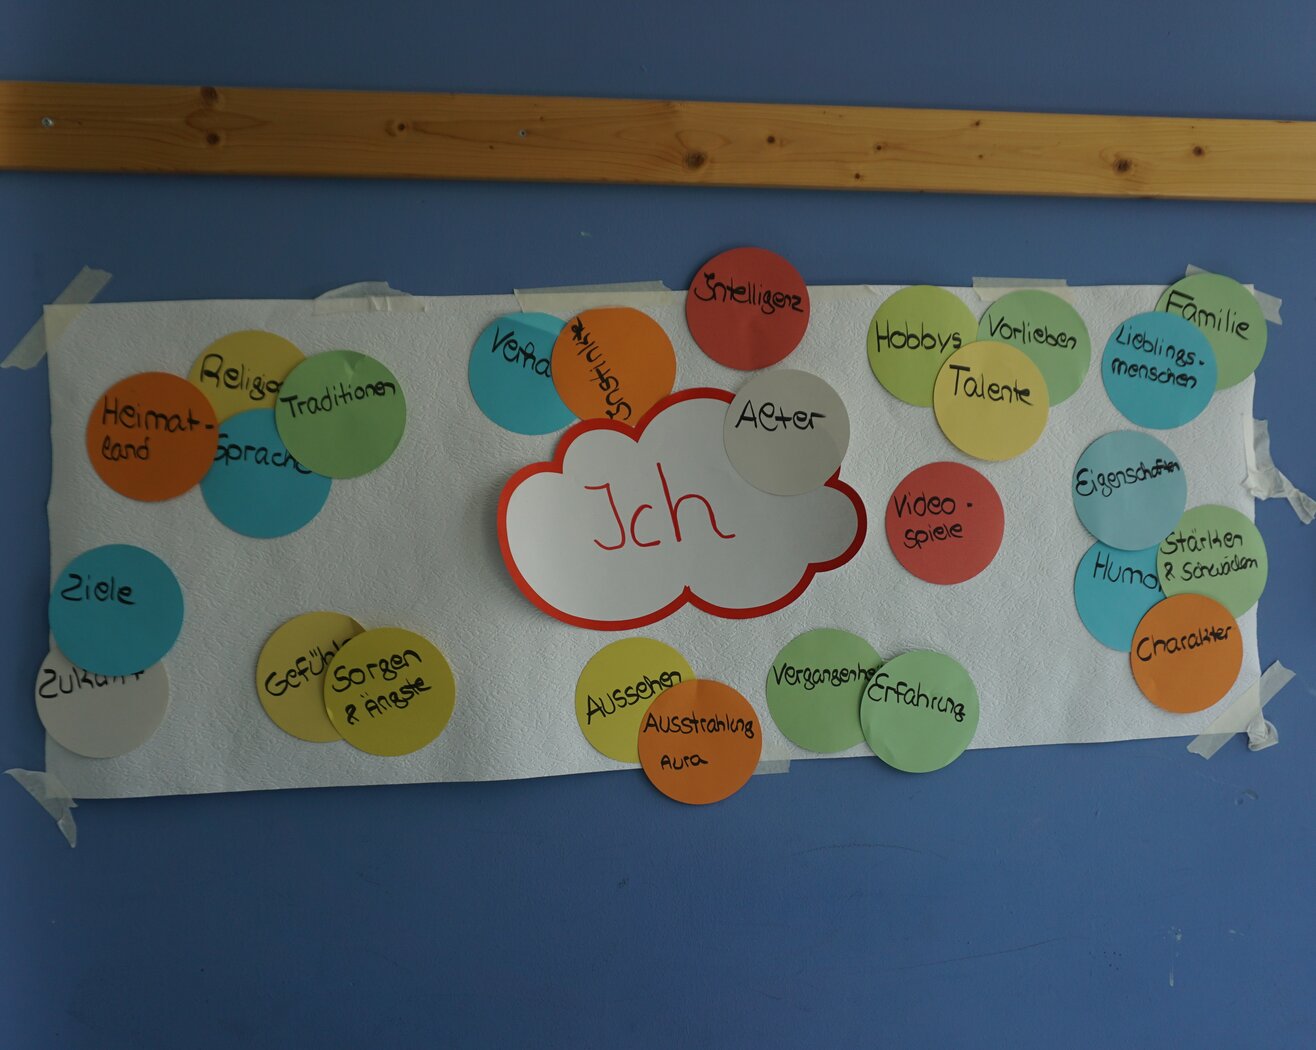 Heimat-
land
Religio
Sprache
Traditionen
Verha
Instinkte
Intelligenz
Alter
Ich
Hobbys
Vorlieben
Talente
Familie
Lieblings-
menschen
Video-
spiele
Eigenschaften
Humo
Stärken
& Schwächen
Charakter
Ziele
Zukunft
Gefühl
Sorgen
& Ängste
Aussehen
Ausstrahlung
Aura
Vergangenhe
Erfahrung